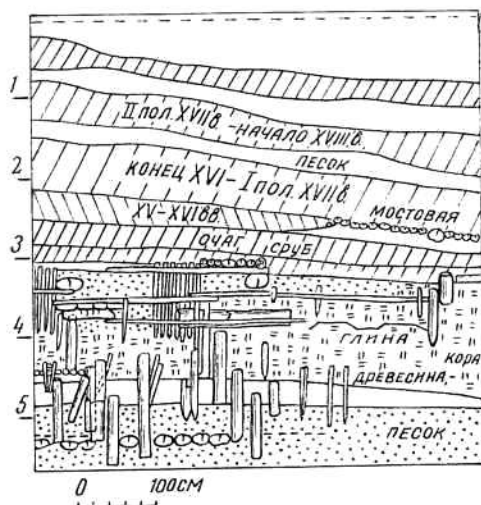 1
II ПОЛ. XVII В. - НАЧАЛО XVIII В.
ПЕСОК
2
КОНЕЦ XVI - I ПОЛ. XVII В.
XV-XVI ВВ.
МОСТОВАЯ
ОЧАГ
СРУБ
3
4
ГЛИНА
КОРА
ДРЕВЕСИНА -
5
ПЕСОК
0 100СМ